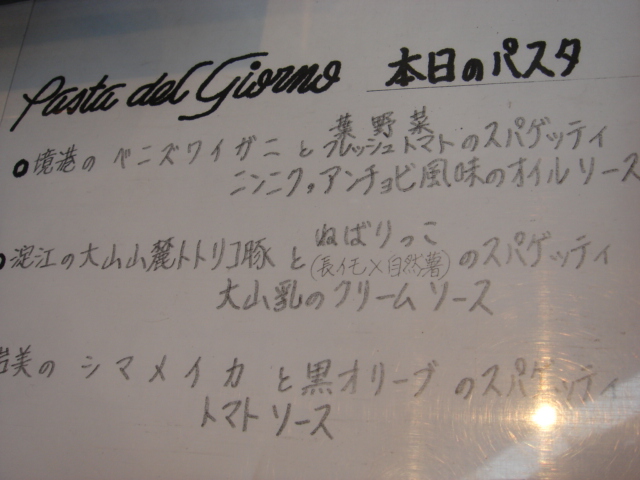 Pasta del Giorno 本日のパスタ
葉野菜
境港のベニズワイガニとフレッシュトマトのスパゲッティ
ニンニク、アンチョビ風味のオイルソース
ぬばりっこ
淀江の大山山麓トトリコ豚と(長イモ×自然薯)のスパゲッティ
大山乳のクリームソース
岩美のシマメイカと黒オリーブのスパゲッティ
トマトソース